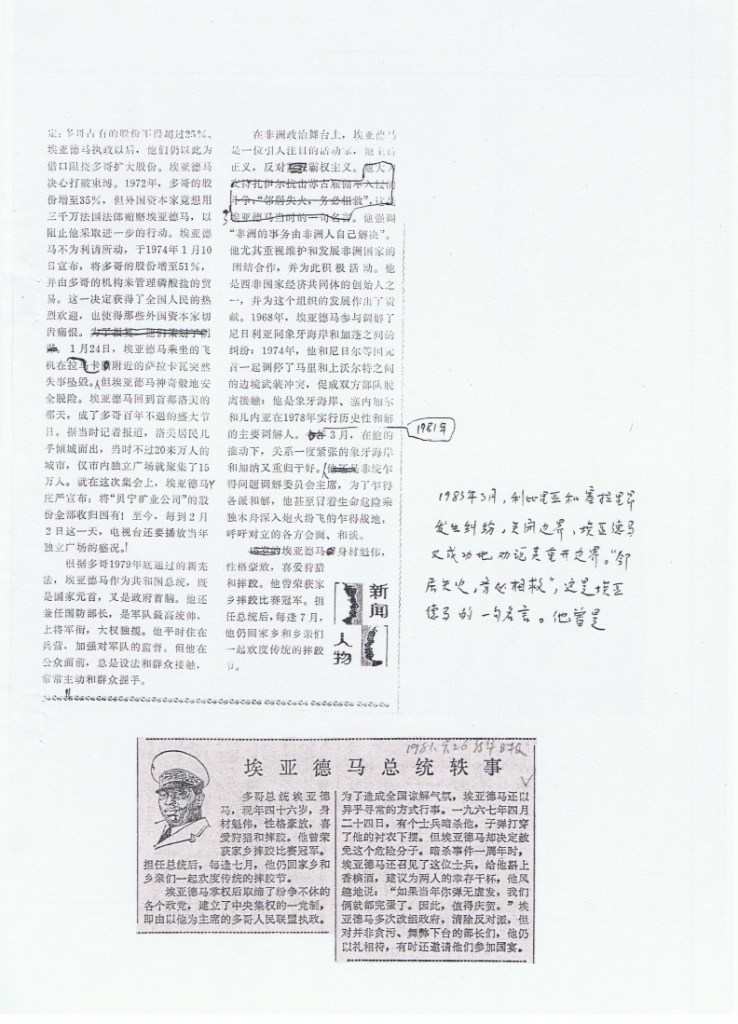 定：多哥占有的股份不得超过25%。
埃亚德马执政以后，他们仍以此为
借口阻挠多哥扩大股份。埃亚德马
决心打破束缚。1972年，多哥的股
份增至35%，但外国资本家竟想用
三千万法国法郎贿赂埃亚德马，以
阻止他采取进一步的行动。埃亚德
马不为利诱所动，于1974年1月10
日宣布，将多哥的股份增至51%，
并由多哥的机构来管理磷酸盐的贸
易。这一决定获得了全国人民的热
烈欢迎，也使得那些外国资本家切
齿痛恨。
1月24日，埃亚德马乘坐的飞
机在拉马卡附近的萨拉卡瓦突然
失事坠毁。但埃亚德马神奇般地安
全脱险。埃亚德马回到首都洛美的
那天，成了多哥百年不遇的盛大节
日。据当时记者报道，洛美居民几
乎倾城而出，当时不过20来万人的
城市，仅市内独立广场就聚集了15
万人。就在这次集会上，埃亚德马
庄严宣布：将“贝宁矿业公司”的股
份全部收归国有！至今，每到2月
2日这一天，电视台还要播放当年
独立广场的盛况。
根据多哥1979年底通过的新宪
法，埃亚德马作为共和国总统，既
是国家元首，又是政府首脑。他还
兼任国防部长，是军队最高统帅、
上将军衔，大权独揽。他平时住在
兵营，加强对军队的监督。但他在
公众面前，总是设法和群众接触，
常常主动和群众握手。
在非洲政治舞台上，埃亚德马
是一位引人注目的活动家，他主持
正义，反对霸权主义。他大力
“邻居失火，务必相救”，这是
埃亚德马当时的一句名言。他强调
“非洲的事务由非洲人自己解决”。
他尤其重视维护和发展非洲国家的
团结合作，并为此积极活动。他
是西非国家经济共同体的创始人之
一，并为这个组织的发展作出了贡
献。1968年，埃亚德马参与调解了
尼日利亚同象牙海岸和加蓬之间的
纠纷；1974年，他和尼日尔等国元
首一起调停了马里和上沃尔特之间
的边境武装冲突，促成双方部队脱
离接触；他是象牙海岸、塞内加尔
和几内亚在1978年实行历史性和解
的主要调解人。3月，在他的
推动下，关系一度紧张的象牙海岸
和加纳又重归于好。他还是非统乍
得问题调解委员会主席，为了乍得
各派和解，他甚至冒着生命危险乘
独木舟深入炮火纷飞的乍得战地，
呼吁对立的各方会面、和谈。
埃亚德马身材魁伟，
性格豪放，喜爱狩猎
和摔跤。他曾荣获家
乡摔跤比赛冠军。担
任总统后，每逢7月，
他仍回家乡和乡亲们
一起欢度传统的摔跤
节。
新闻
人物
1981年
1983年3月，利比里亚和塞拉里昂
发生纠纷，关闭边界，埃亚德马
又成功地劝说其重开边界。“邻
居失火，务必相救”，这是埃亚
德马的一句名言。他曾是
1981.9.26
埃亚德马总统轶事
多哥总统埃亚德
马，现年四十六岁，身
材魁伟，性格豪放，喜
爱狩猎和摔跤。他曾荣
获家乡摔跤比赛冠军。
担任总统后，每逢七月，他仍回家乡和
乡亲们一起欢度传统的摔跤节。
埃亚德马掌权后取缔了纷争不休的
各个政党，建立了中央集权的一党制，
即由以他为主席的多哥人民联盟执政。
为了造成全国谅解气氛，埃亚德马还以
异乎寻常的方式行事。一九六七年四月
二十四日，有个士兵暗杀他，子弹打穿
了他的衬衣下摆。但埃亚德马却决定赦
免这个危险分子。暗杀事件一周年时，
埃亚德马还召见了这位士兵，给他斟上
香槟酒，建议为两人的幸存干杯，他风
趣地说：“如果当年你弹无虚发，我们
俩就都完蛋了。因此，值得庆贺。”埃
亚德马多次改组政府，清除反对派，但
对并非贪污、舞弊下台的部长们，他仍
以礼相待，有时还邀请他们参加国宴。